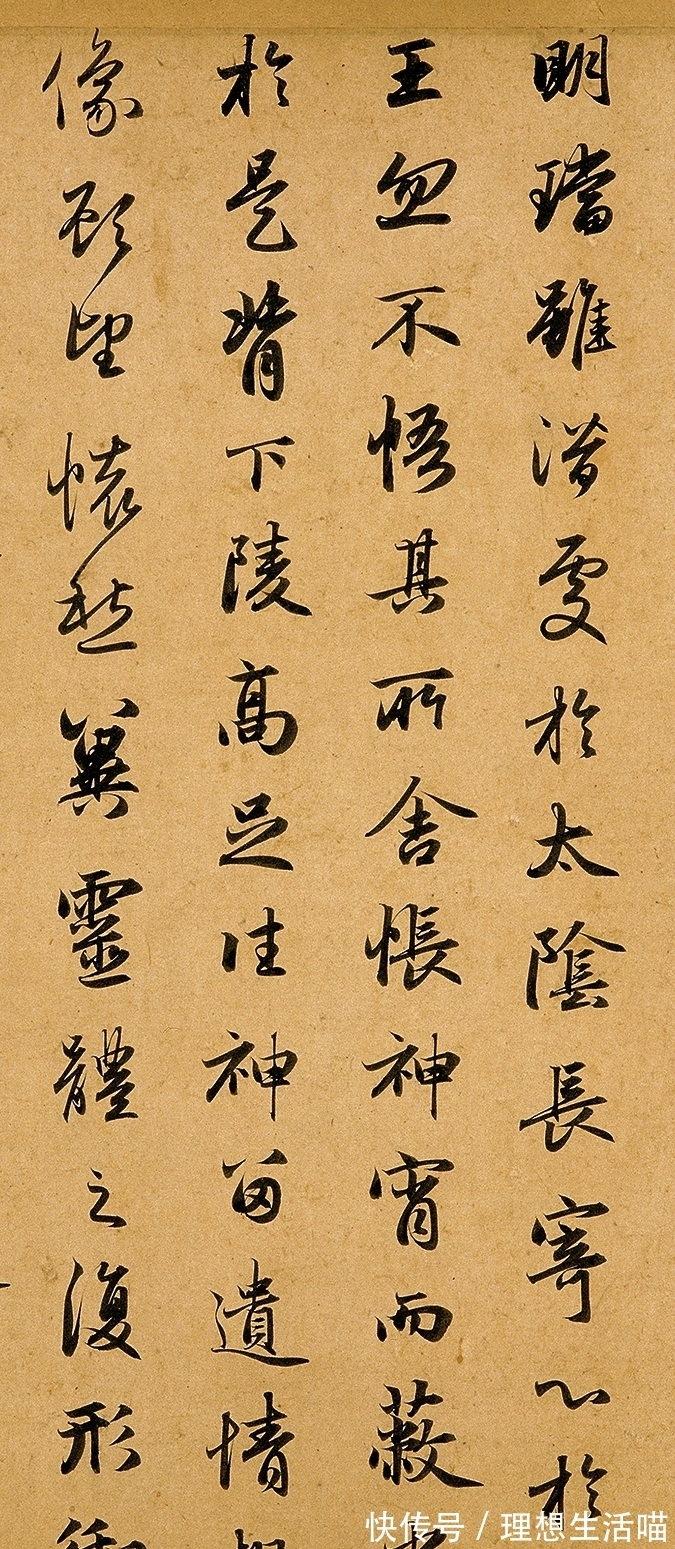 明璫雖潛處於太陰長寄心於
王忽不悟其所舍悵神宵而蔽
於是背下陵高足往神留遺情
像顧望懷愁冀靈體之復形
快传号 / 理想生活喵